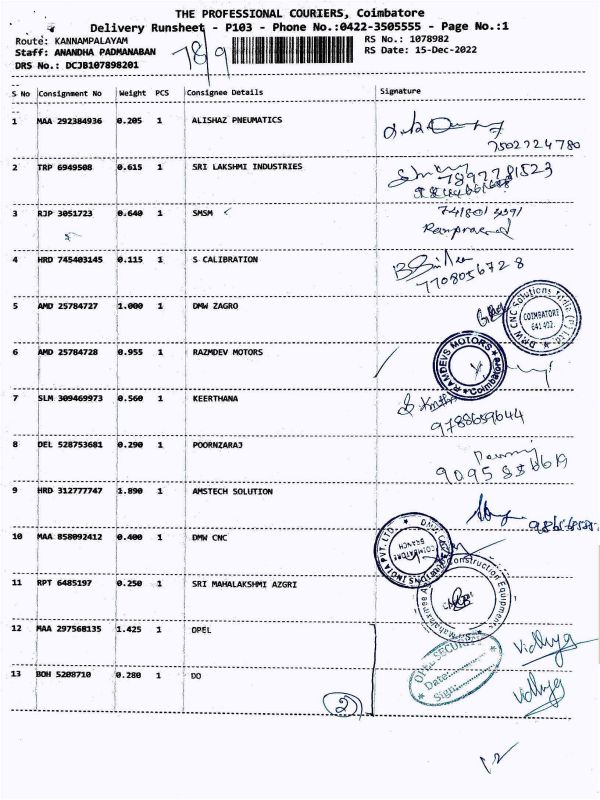 THE PROFESSIONAL COURIERS, Coimbatore
Delivery Runsheet - P103 - Phone No.:0422-3505555 - Page No.:1
Route: KANNAMPALAYAM RS No.: 1078982
Staff: ANANDHA PADMANABAN 78/9 RS Date: 15-Dec-2022
DRS No.: DCJB107898201
S No Consignment No Weight PCS Consignee Details Signature
1 MAA 292384936 0.205 1 ALISHAZ PNEUMATICS
7502724780
2 TRP 6949508 0.615 1 SRI LAKSHMI INDUSTRIES
7897781523
3 RJP 3051723 0.640 1 SMSM
Ramprasad
4 HRD 745403145 0.115 1 S CALIBRATION
7708056728
5 AMD 25784727 1.000 1 DMW ZAGRO
DMW CNC Solutions India (P) Ltd.
COIMBATORE
641 402.
6 AMD 25784728 0.955 1 RAZMDEV MOTORS
RAMDEVS MOTORS
Coimbatore
7 SLM 309469973 0.560 1 KEERTHANA
9788659644
8 DEL 528753681 0.290 1 POORNZARAJ
9095836619
9 HRD 312777747 1.890 1 AMSTECH SOLUTION
10 MAA 858092412 0.400 1 DMW CNC
COIMBATORE
BRANCH
11 RPT 6485197 0.250 1 SRI MAHALAKSHMI AZGRI
Construction Equipments
12 MAA 297568135 1.425 1 OPEL
OPEL SECURITY
Date:
Sign:
Vidhya
13 BOH 5208710 0.280 1 DO
Vidhya
2